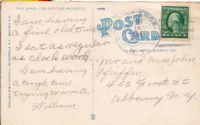 THIS SPACE FOR WRITING MESSAGES
POST CARD
I am having
a fine old time
I eat as regular
as clock work.
I am having
a tough time
trying to write
William.
Mr and Mrs John
450 First St
Albany N.Y.